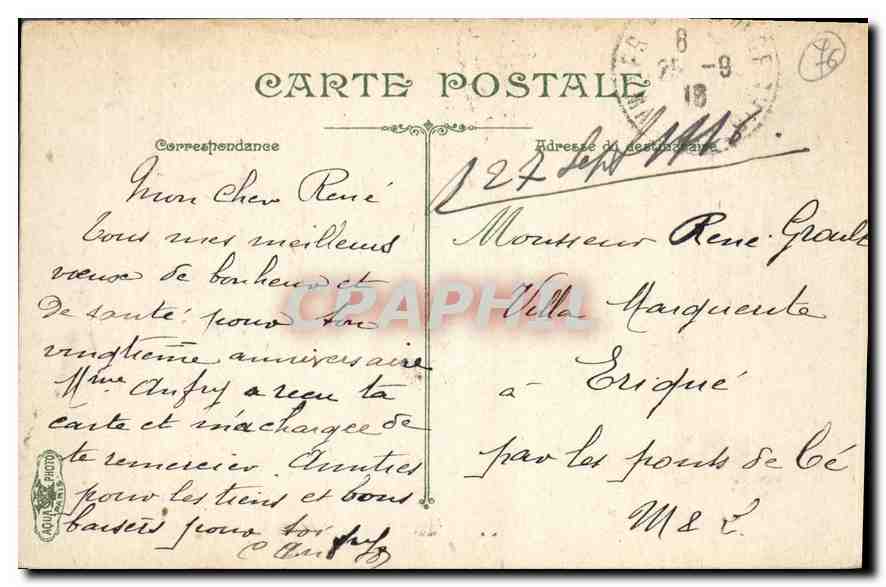 76
8
25 -9
18
CARTE POSTALE
Correspondance
Adresse du destinataire
27 Sept
Mon cher René
Tous mes meilleurs
vœux de bonheur et
de santé pour ton
vingtième anniversaire
Mme Aufry a reçu ta
carte et m'a chargée de
te remercier. Amitiés
pour les tiens et bons
baisers pour toi
Monsieur René
Villa Marguerite
à Erigné
par les ponts de Cé
M & L.
CPAPHIL
AQUA PHOTO
PARIS